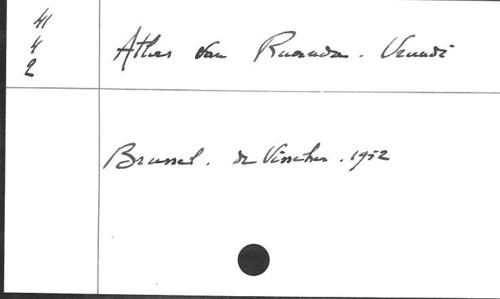 41
4
2
Atlas van Ruanda - Urundi
Brussel. de Visscher. 1952